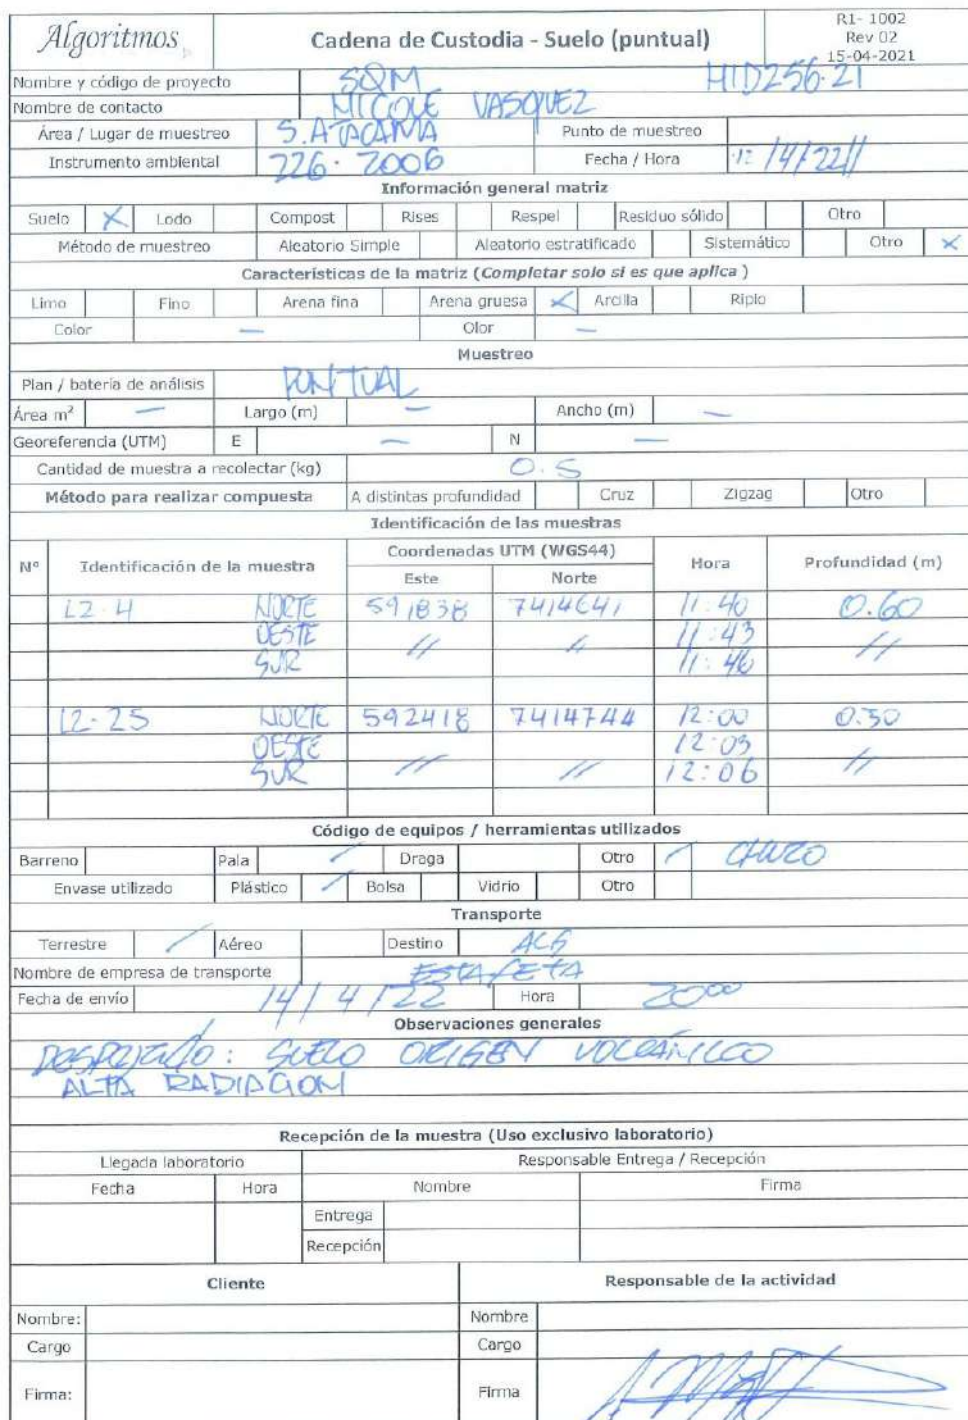 Algoritmos
Cadena de Custodia - Suelo (puntual)
R1- 1002
Rev 02
15-04-2021
Nombre y código de proyecto SQM HID256-21
Nombre de contacto NICOLE VASQUEZ
Área / Lugar de muestreo S. ATACAMA Punto de muestreo
Instrumento ambiental 226. 2006 Fecha / Hora 12/4/22//
Información general matriz
Suelo X Lodo Compost Rises Respel Residuo sólido Otro
Método de muestreo Aleatorio Simple Aleatorio estratificado Sistemático Otro X
Características de la matriz (Completar solo si es que aplica )
Limo Fino Arena fina Arena gruesa X Arcilla Ripio
Color — Olor —
Muestreo
Plan / batería de análisis PUNTUAL
Área m² — Largo (m) — Ancho (m) —
Georeferencia (UTM) E — N —
Cantidad de muestra a recolectar (kg) 0.5
Método para realizar compuesta A distintas profundidad Cruz Zigzag Otro
Identificación de las muestras
Nº Identificación de la muestra Coordenadas UTM (WGS44) Hora Profundidad (m)
Este Norte
L2-4 NORTE 591838 7414641 11:40 0.60
OESTE // // 11:43 //
SUR 11:46
L2-25 NORTE 592418 7414744 12:00 0.50
OESTE 12:03
SUR // // 12:06 //
Código de equipos / herramientas utilizados
Barreno Pala / Draga Otro / CHUZO
Envase utilizado Plástico / Bolsa Vidrio Otro
Transporte
Terrestre / Aéreo Destino
Nombre de empresa de transporte ESTAFETA
Fecha de envío 14/4/22 Hora 2000
Observaciones generales
: SUELO ORIGEN VOLCÁNICO
ALTA RADIACION
Recepción de la muestra (Uso exclusivo laboratorio)
Llegada laboratorio Responsable Entrega / Recepción
Fecha Hora Nombre Firma
Entrega
Recepción
Cliente Responsable de la actividad
Nombre: Nombre
Cargo Cargo
Firma: Firma